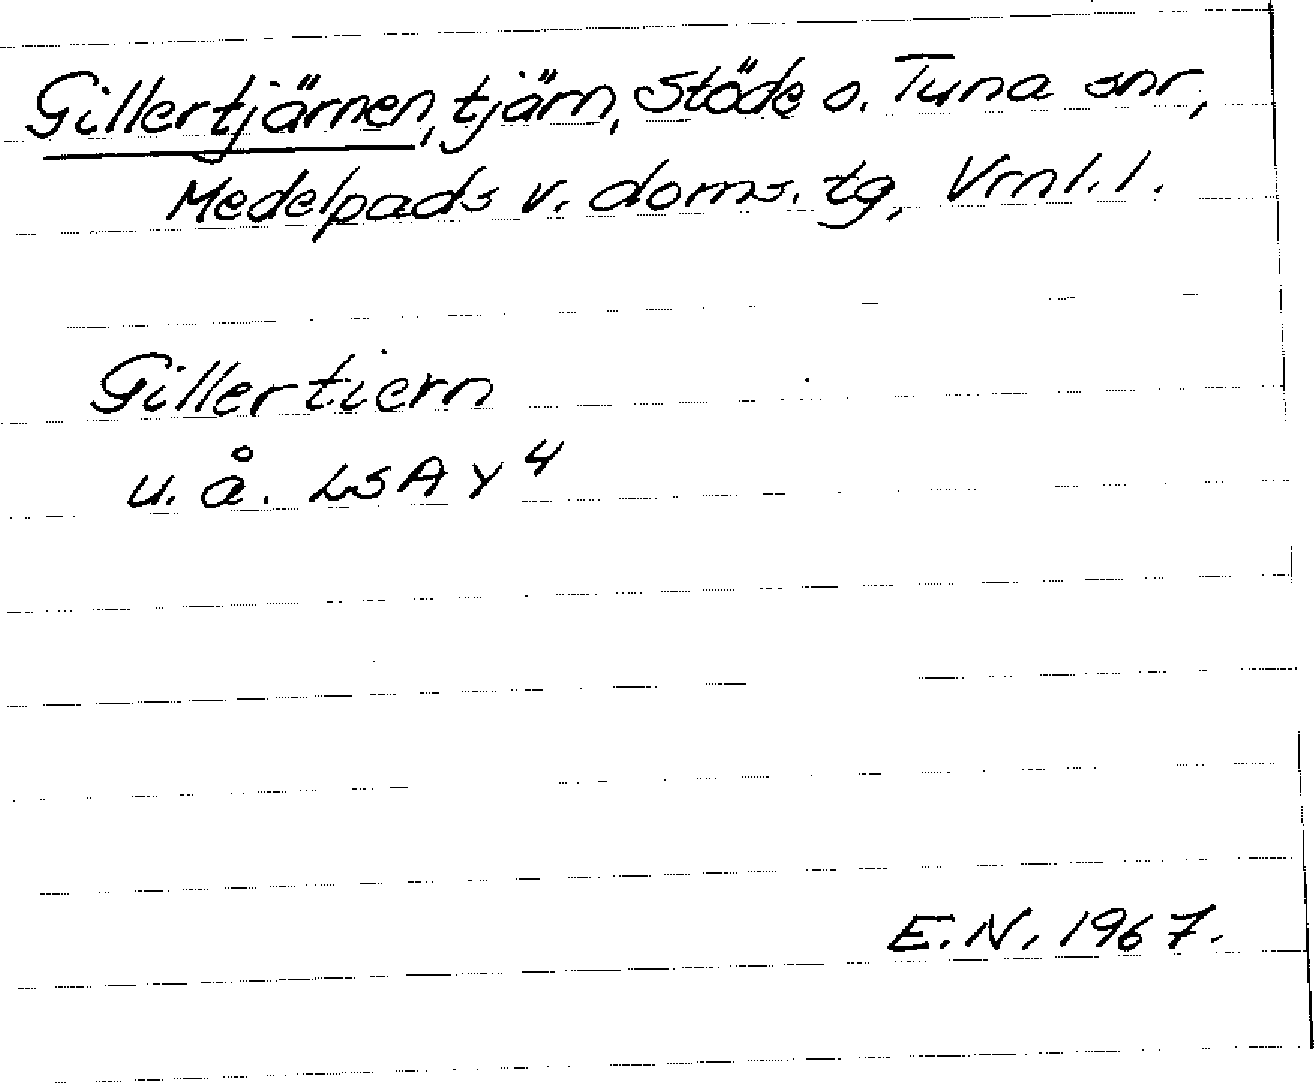 Gillertjärnen, tjärn, Stöde o. Tuna snr,
Medelpads v. doms. tg, Vrnl. l.
Gillertiern
u. å. LSA Y 4
E. N. 1967.